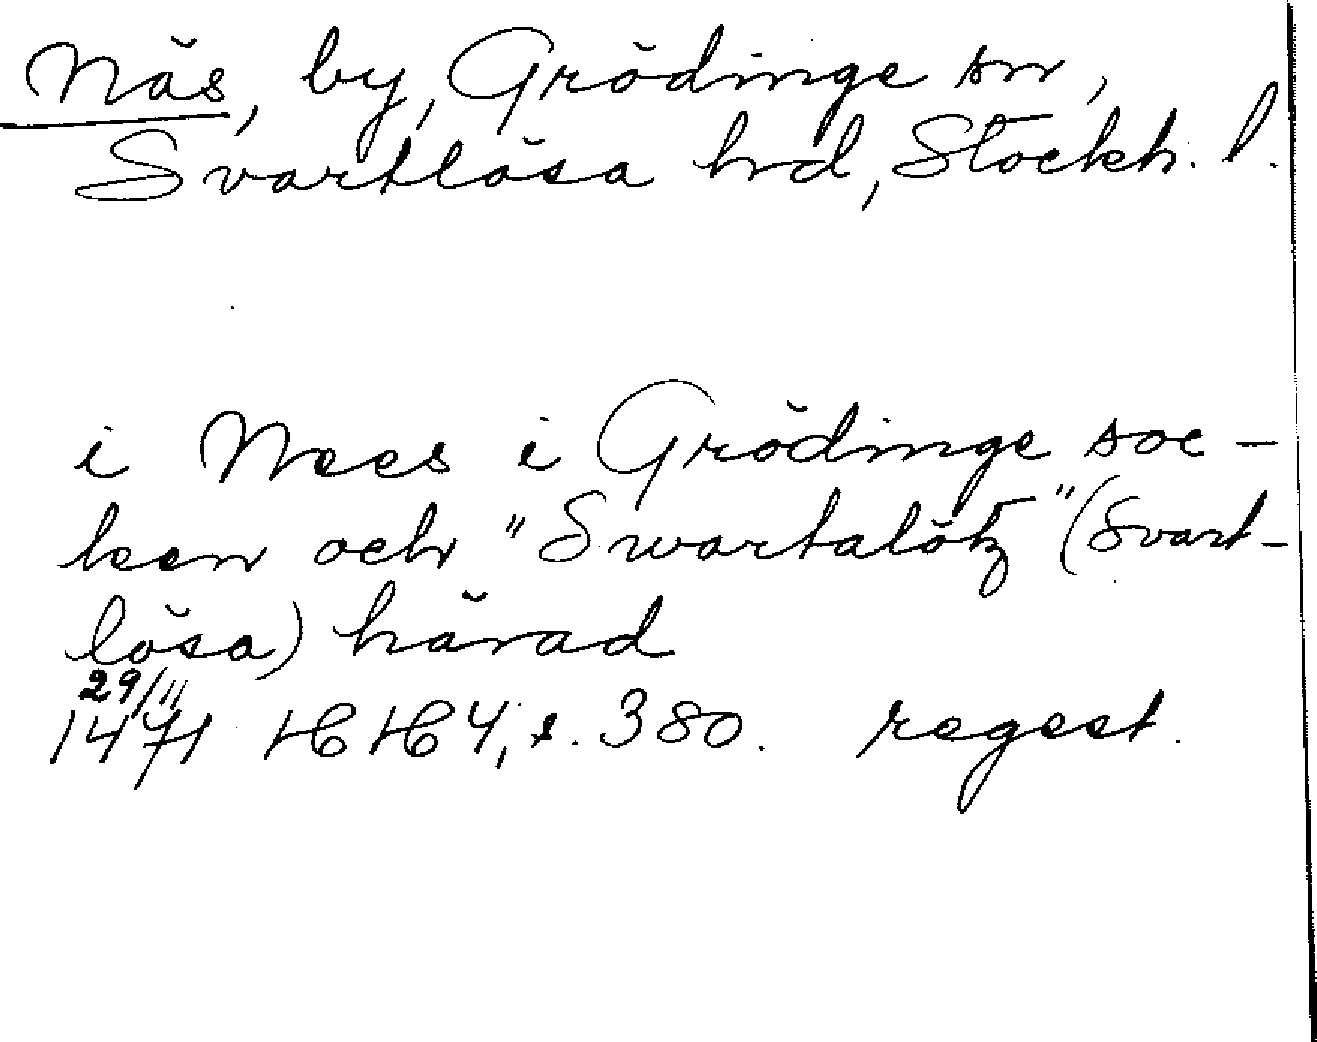 Näs, by, Grödinge sn,
Svartlösa hrd, Stockh. l.
i Nees i Grödinge soc-
ken och "Swartalötz" (Svart-
lösa) härad
29/11
1471 HH 4, s. 380. regest.